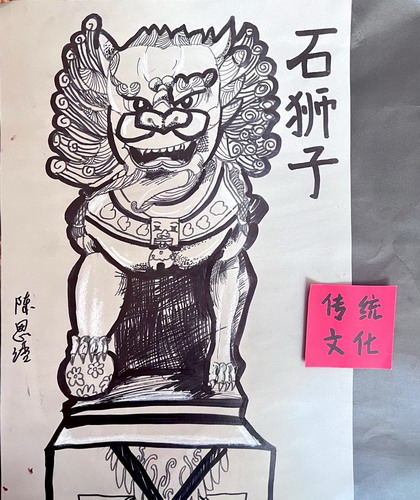 石狮子
传统
文化
陈思